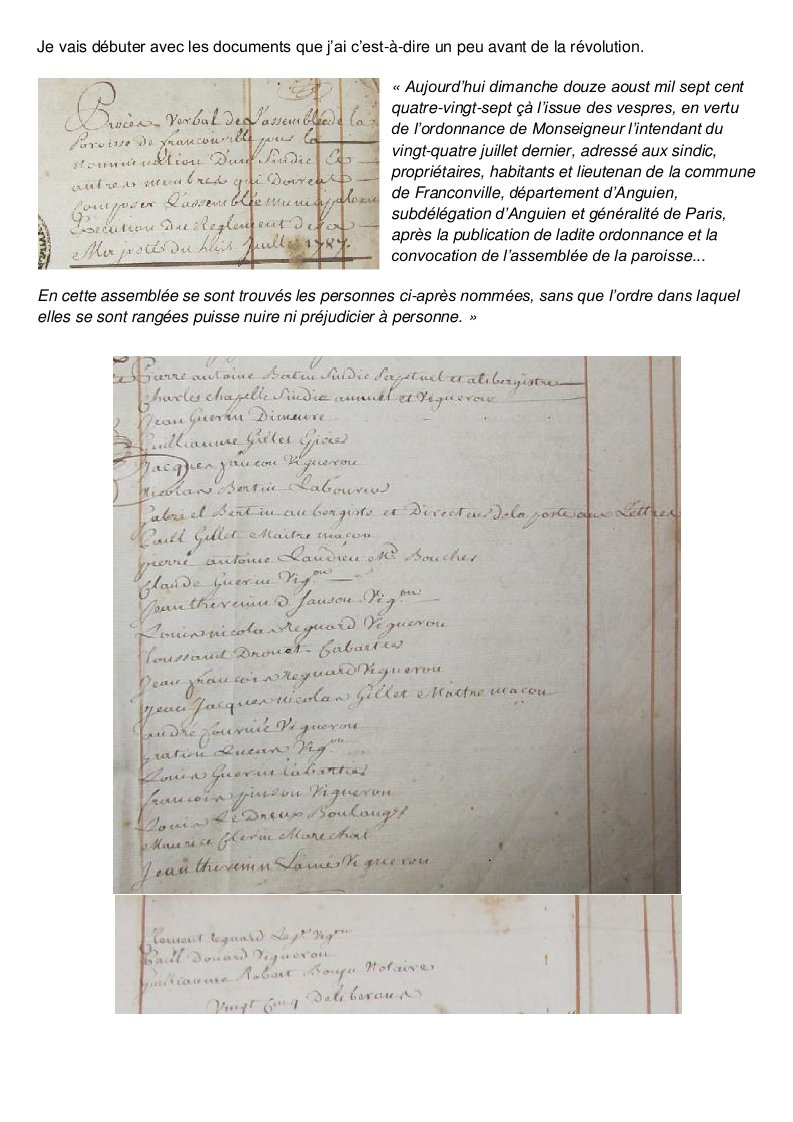 Je vais débuter avec les documents que j’ai c’est-à-dire un peu avant de la révolution.
Procès Verbal de L'assemblée de la
Paroisse de franconville pour la
nommination D'un Sindic Et
autres membres qui Doivent
Composer L'assemblée municipale en
Execution Du Reglement de sa
Majesté du huit Juillet 1787.
« Aujourd’hui dimanche douze aoust mil sept cent
quatre-vingt-sept çà l’issue des vespres, en vertu
de l’ordonnance de Monseigneur l’intendant du
vingt-quatre juillet dernier, adressé aux sindic,
propriétaires, habitants et lieutenan de la commune
de Franconville, département d’Anguien,
subdélégation d’Anguien et généralité de Paris,
après la publication de ladite ordonnance et la
convocation de l’assemblée de la paroisse...
En cette assemblée se sont trouvés les personnes ci-après nommées, sans que l’ordre dans laquel
elles se sont rangées puisse nuire ni préjudicier à personne. »
Pierre antoine Batin Sindic Perpetuel et aubergiste
Charles chapelle Sindic annuel et Vigneron
Jean Guerin
Guilliaume Gillet
Jacques Vigneron
Nicolas Bertin Laboureur
Gabriel Bertin aubergiste et Directeur de la poste aux Lettres
Paul Gillet Maitre maçon
pierre antoine Landrieu Md Boucher
Claude Guerin Vigon
Jean thevenin Vigon
Louis nicolas regnard Vigneron
Toussaint Drouet Cabartier
Jean francois regnard Vigneron
Jean Jacques nicolas Gillet Maitre maçon
andré Vigneron
Vigon
Louis Guerin Cabartier
francois Vigneron
Louis Le Dreux Boulanger
Maurice Clerin Marechal
Jean thevenin Lainé Vigneron
Clement regnard Vigon
Paul Donard Vigneron
Guilliaume Robert Notaire
Vingt Cinq Deliberans